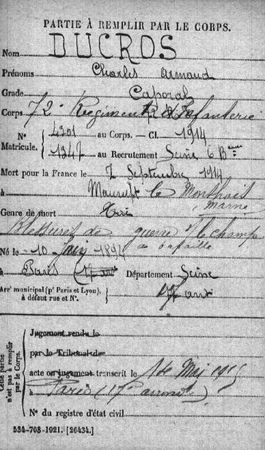 PARTIE À REMPLIR PAR LE CORPS.
Nom DUCROS
Prénoms Charles Armand
Grade Caporal
Corps 72e Régiment d'Infanterie
N° 4201 au Corps. — Cl. 1914
Matricule. 1347 au Recrutement Seine 6 Bau
Mort pour la France le 7 Septembre 1914
à Maurupt le Monthois
Marne
Genre de mort Tué
Blessures de guerre s/ le champ
de bataille
Né le 10 Juin 1894
à Paris (17e arrt) Département Seine
Arrt municipal (pr Paris et Lyon),
à défaut rue et N°. 17e arrt
Cette partie n'est pas à remplir par le Corps.
Jugement rendu le
par le Tribunal de
acte ou jugement transcrit le 1er Mai 1915
à Paris (17e arront)
N° du registre d'état civil
534-708-1921. [26434.]